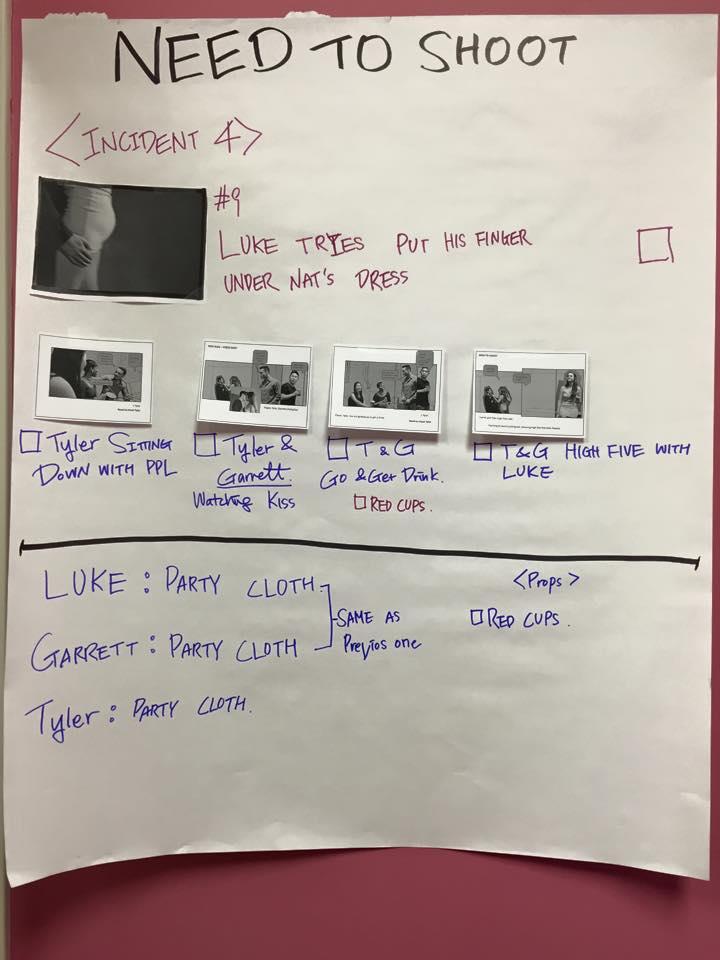 NEED TO SHOOT
<INCIDENT 4>
#9
LUKE TRYES PUT HIS FINGER
UNDER NAT'S DRESS
Tyler SITTING
DOWN WITH PPL
Tyler &
Garrett.
Watching KISS
T & G
GO & GET DRINK.
RED CUPS.
T&G HIGH FIVE WITH
LUKE
LUKE : PARTY CLOTH
GARRETT : PARTY CLOTH
SAME AS
Previos one
Tyler : PARTY CLOTH.
<Props>
RED CUPS.